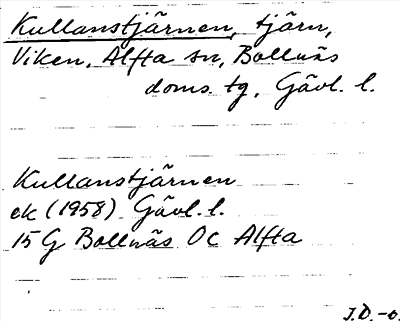 Kullanstjärnen, tjärn,
Viken, Alfta sn, Bollnäs
doms. tg, Gävl. l.
Kullanstjärnen
ek (1958) Gävl. l.
15 G Bollnäs OC Alfta
J.D.-o.